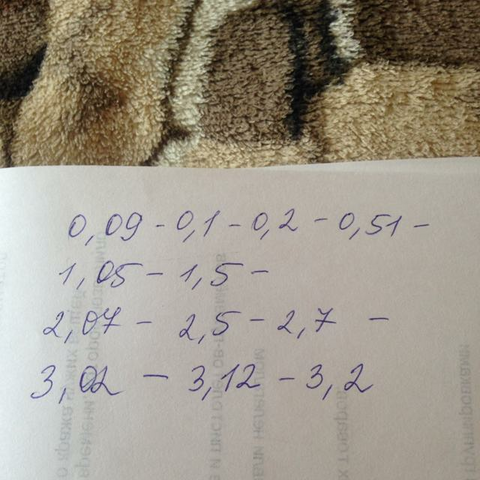 0,09 - 0,1 - 0,2 - 0,51 -
1,05 - 1,5 -
2,07 - 2,5 - 2,7 -
3,02 - 3,12 - 3,2